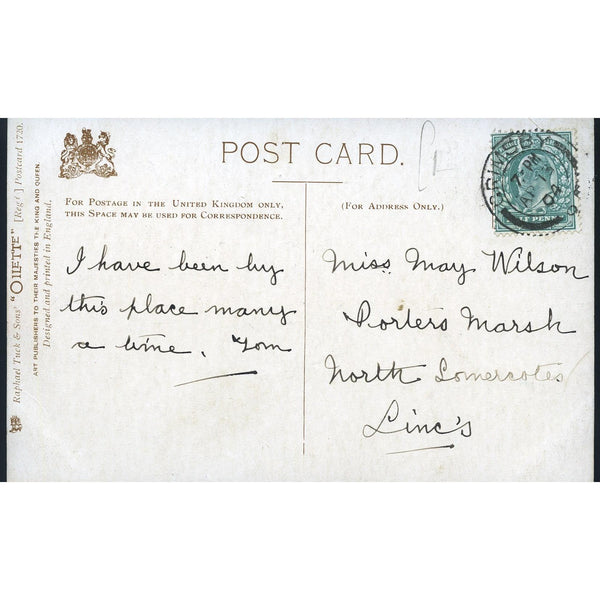 Raphael Tuck & Sons' "OILETTE" [Regd] Postcard 1720.
ART PUBLISHERS TO THEIR MAJESTIES THE KING AND QUEEN.
Designed and printed in England.
POST CARD.
FOR POSTAGE IN THE UNITED KINGDOM ONLY,
THIS SPACE MAY BE USED FOR CORRESPONDENCE.
(FOR ADDRESS ONLY.)
I have been by
this place many
a time. Tom
Miss May Wilson
Porters Marsh
North Somercotes
Linc's
GRIMSBY